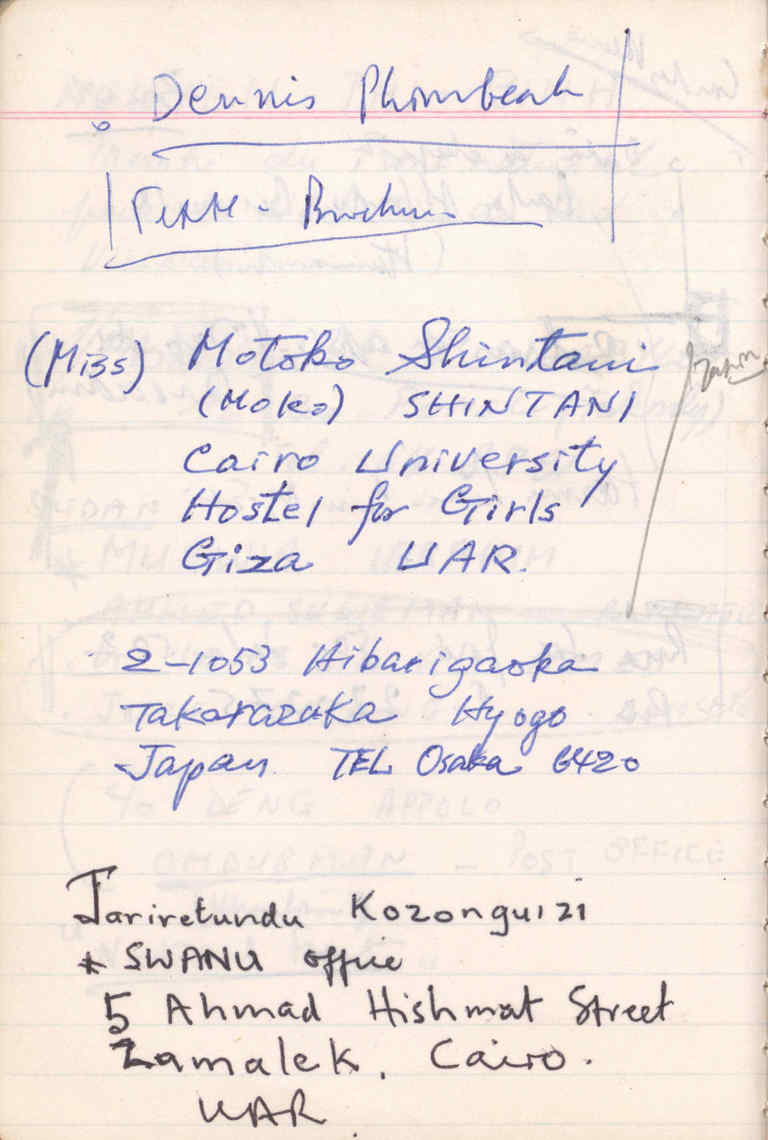 Dennis Phombeah
Brochure
(Miss) Motoko Shintani
(MOKO) SHINTANI
Cairo University
Hostel for Girls
Giza UAR.
2-1053 Hibarigaoka
Takarazuka Hyogo
Japan TEL Osaka 6420
Japan
Jariretundu Kozonguizi
* SWANU office
5 Ahmad Hishmat Street
Zamalek, Cairo.
UAR